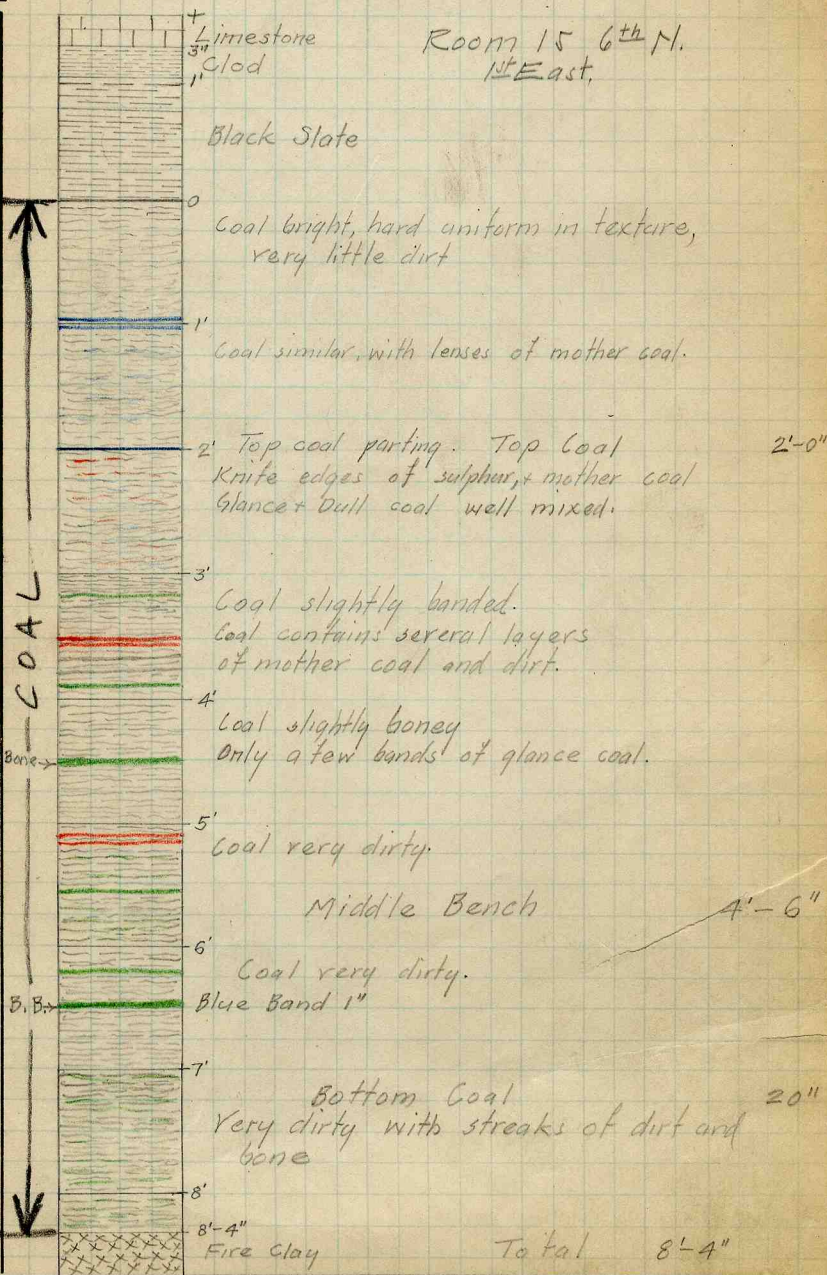 +
Limestone Room 15 6th N.
3" 1st East.
Clod
1'
Black Slate
0
Coal bright, hard uniform in texture,
very little dirt
1'
Coal similar, with lenses of mother coal.
2' Top coal parting. Top Coal 2'-0"
Knife edges of sulphur, + mother coal
Glance + Dull coal well mixed.
3'
Coal slightly banded.
COAL
Coal contains several layers
of mother coal and dirt.
4'
Coal slightly boney
Bone Only a few bands of glance coal.
5'
Coal very dirty.
Middle Bench 4'-6"
6'
Coal very dirty.
B.B. Blue Band 1"
7'
Bottom Coal 20"
Very dirty with streaks of dirt and
bone
8'
8'-4"
Fire Clay Total 8'-4"